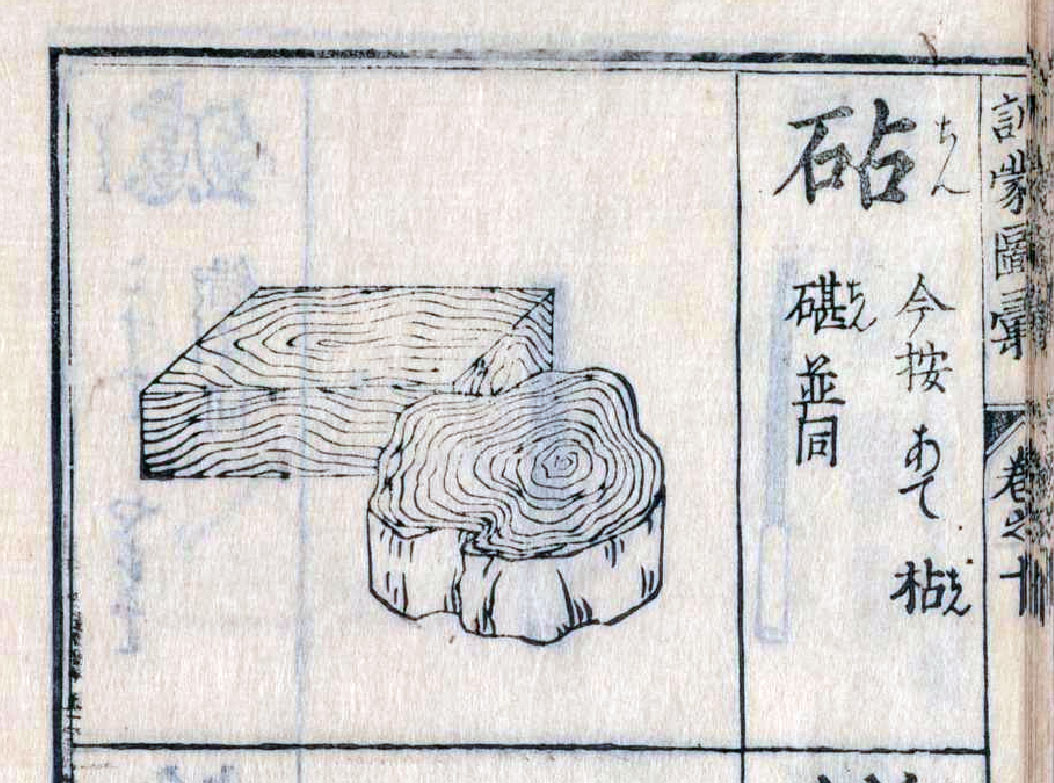 訓蒙圖彙 卷之十
砧 ちん
今按あて 枮ちん
碪ちん 並同